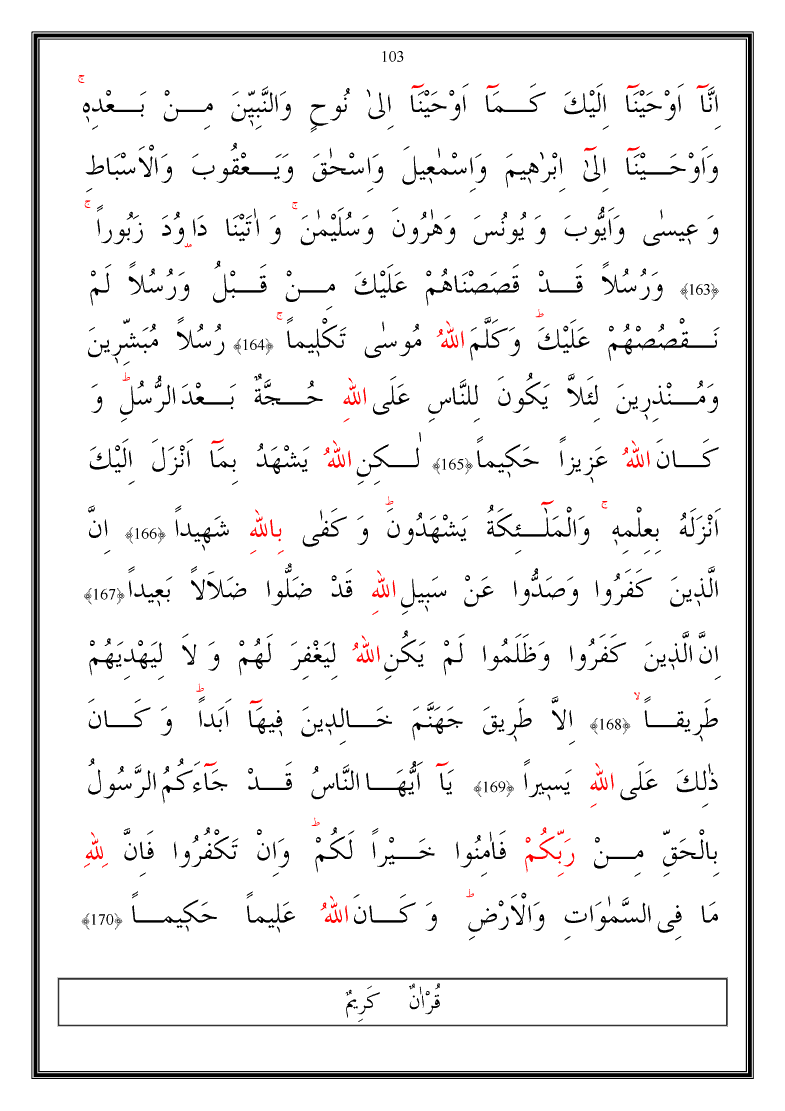 103
اِنَّٓا اَوْحَيْنَٓا اِلَيْكَ كَـــمَٓا اَوْحَيْنَٓا اِلىٰ نُوحٍ وَالنَّبِيّ۪نَ مِـــنْ بَـــعْدِه۪ۚ
وَاَوْحَـــيْنَٓا اِلىٰٓ اِبْرٰه۪يمَ وَاِسْمٰع۪يلَ وَاِسْحٰقَ وَيَـــعْقُوبَ وَالْاَسْبَاطِ
وَ ع۪يسٰى وَاَيُّوبَ وَ يُونُسَ وَهٰرُونَ وَسُلَيْمٰنَۚ وَ اٰتَيْنَا دَاوُ۫دَ زَبُوراًۚ
﴿163﴾ وَرُسُلاً قَـــدْ قَصَصْنَاهُمْ عَلَيْكَ مِـــنْ قَـــبْلُ وَرُسُلاً لَمْ
نَـــقْصُصْهُمْ عَلَيْكَۜ وَكَلَّمَ اللّٰهُ مُوسٰى تَكْل۪يماًۚ ﴿164﴾ رُسُلاً مُبَشِّر۪ينَ
وَمُـــنْذِر۪ينَ لِئَلاَّ يَكُونَ لِلنَّاسِ عَلَى اللّٰهِ حُـــجَّةٌ بَـــعْدَ الرُّسُلِۜ وَ
كَـــانَ اللّٰهُ عَز۪يزاً حَك۪يماً ﴿165﴾ لٰـــكِنِ اللّٰهُ يَشْهَدُ بِمَٓا اَنْزَلَ اِلَيْكَ
اَنْزَلَهُ بِعِلْمِه۪ۚ وَالْمَلٰٓـــئِكَةُ يَشْهَدُونَۜ وَ كَفٰى بِاللّٰهِ شَه۪يداً ﴿166﴾ اِنَّ
الَّذ۪ينَ كَفَرُوا وَصَدُّوا عَنْ سَب۪يلِ اللّٰهِ قَدْ ضَلُّوا ضَلاَلاً بَع۪يداً ﴿167﴾
اِنَّ الَّذ۪ينَ كَفَرُوا وَظَلَمُوا لَمْ يَكُنِ اللّٰهُ لِيَغْفِرَ لَهُمْ وَ لاَ لِيَهْدِيَهُمْ
طَر۪يقـــاًۙ ﴿168﴾ اِلاَّ طَر۪يقَ جَهَنَّمَ خَـــالِد۪ينَ ف۪يهَٓا اَبَداًۜ وَ كَـــانَ
ذٰلِكَ عَلَى اللّٰهِ يَس۪يراً ﴿169﴾ يَٓا اَيُّهَـــا النَّاسُ قَـــدْ جَٓاءَكُمُ الرَّسُولُ
بِالْحَقِّ مِـــنْ رَبِّكُمْ فَاٰمِنُوا خَـــيْراً لَكُمْۜ وَاِنْ تَكْفُرُوا فَاِنَّ لِلّٰهِ
مَا فِى السَّمٰوَاتِ وَالْاَرْضِۜ وَ كَـــانَ اللّٰهُ عَل۪يماً حَك۪يمـــاً ﴿170﴾
قُرْاٰنٌ كَر۪يمٌ